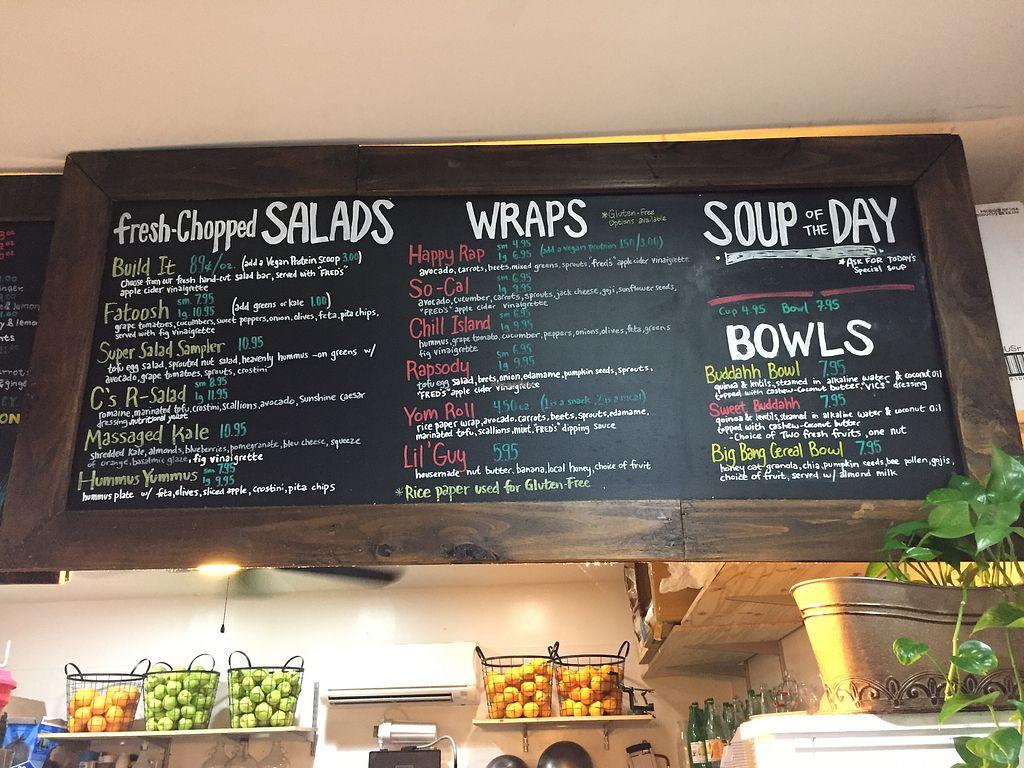 fresh-Chopped SALADS
Build It 89¢/oz. (add a Vegan Protein Scoop 3.00)
choose from our fresh hand-cut salad bar, served with "FRED'S"
apple cider vinaigrette
Fatoosh sm. 7.95 lg. 10.95 (add greens or kale 1.00)
grape tomatoes, cucumbers, sweet peppers, onion, olives, feta, pita chips,
served with fig vinaigrette
Super Salad Sampler 10.95
tofu egg salad, sprouted nut salad, heavenly hummus -on greens w/
avocado, grape tomatoes, sprouts, crostini
C's R-Salad sm 8.95 lg 11.95
romaine, marinated tofu, crostini, scallions, avocado, Sunshine Caesar
dressing, nutritional yeast
Massaged Kale 10.95
shredded kale, almonds, blueberries, pomegranate, bleu cheese, squeeze
of orange, basalmic glaze, fig vinaigrette
Hummus Yummus sm 7.95 lg 9.95
hummus plate w/ feta, olives, sliced apple, crostini, pita chips
WRAPS *Gluten-Free
Options available
Happy Rap sm 4.95 lg 6.95 (add a vegan protein 1.50/3.00)
avocado, carrots, beets, mixed greens, sprouts, "fred's" apple cider vinaigrette
So-Cal sm 6.95 lg 9.95
avocado, cucumber, carrots, sprouts, jack cheese, goji, sunflower seeds,
"FRED'S" apple cider vinaigrette
Chill Island sm 6.95 lg 9.95
hummus, grape tomato, cucumber, peppers, onions, olives, feta, greens
fig vinaigrette
Rapsody sm 6.95 lg 9.95
tofu egg salad, beets, onion, edamame, pumpkin seeds, sprouts,
"FRED'S" apple cider vinaigrette
Yom Roll 4.50 ea (1 is a snack, 2 is a meal)
rice paper wrap, avocado, carrots, beets, sprouts, edamame,
marinated tofu, scallions, mint, "FRED'S" dipping sauce
Lil' Guy 5.95
housemade nut butter, banana, local honey, choice of fruit
*Rice paper used for Gluten-Free
SOUP OF THE DAY
*ASK FOR TODAY'S
Special Soup
Cup 4.95 Bowl 7.95
BOWLS
Buddahh Bowl 7.95
quinoa & lentils, steamed in alkaline water & coconut oil
topped with cashew-coconut butter, "VIC'S" dressing
Sweet Buddahh 7.95
quinoa & lentils, steamed in alkaline water & coconut oil
topped with cashew-coconut butter
-Choice of Two fresh fruits, one nut
Big Bang Cereal Bowl 7.95
honey oat granola, chia, pumpkin seeds, bee pollen, gojis,
choice of fruit, served w/ almond milk